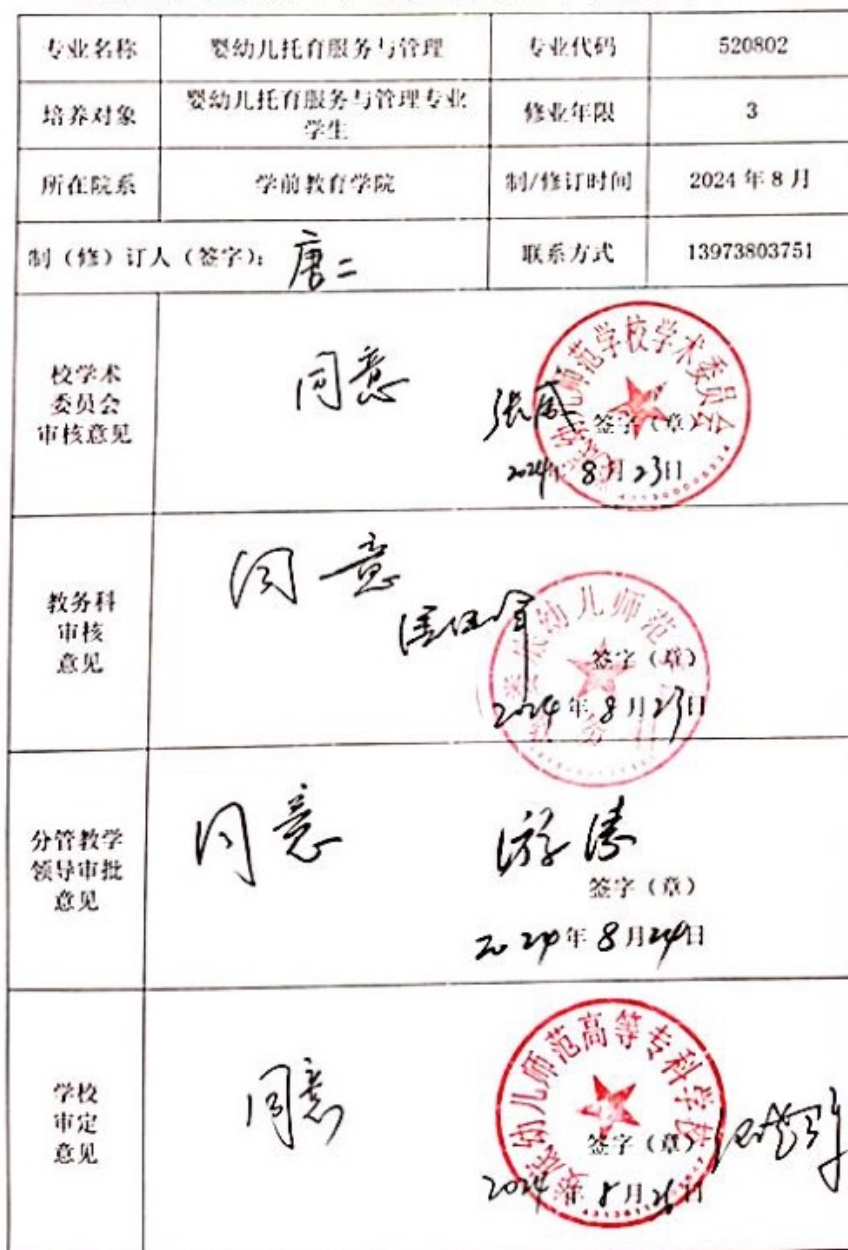 专业名称 婴幼儿托育服务与管理 专业代码 520802
培养对象 婴幼儿托育服务与管理专业
学生 修业年限 3
所在院系 学前教育学院 制/修订时间 2024年8月
制（修）订人（签字）：唐二 联系方式 13973803751
校学术
委员会
审核意见
同意
签字（章）
2024年8月23日
幼儿师范学校学术委员会
教务科
审核
意见
同意
签字（章）
2024年8月23日
娄底幼儿师范
分管教学
领导审批
意见
同意
游涛
签字（章）
2024年8月24日
学校
审定
意见
同意
签字（章）
2024年8月26日
娄底幼儿师范高等专科学校